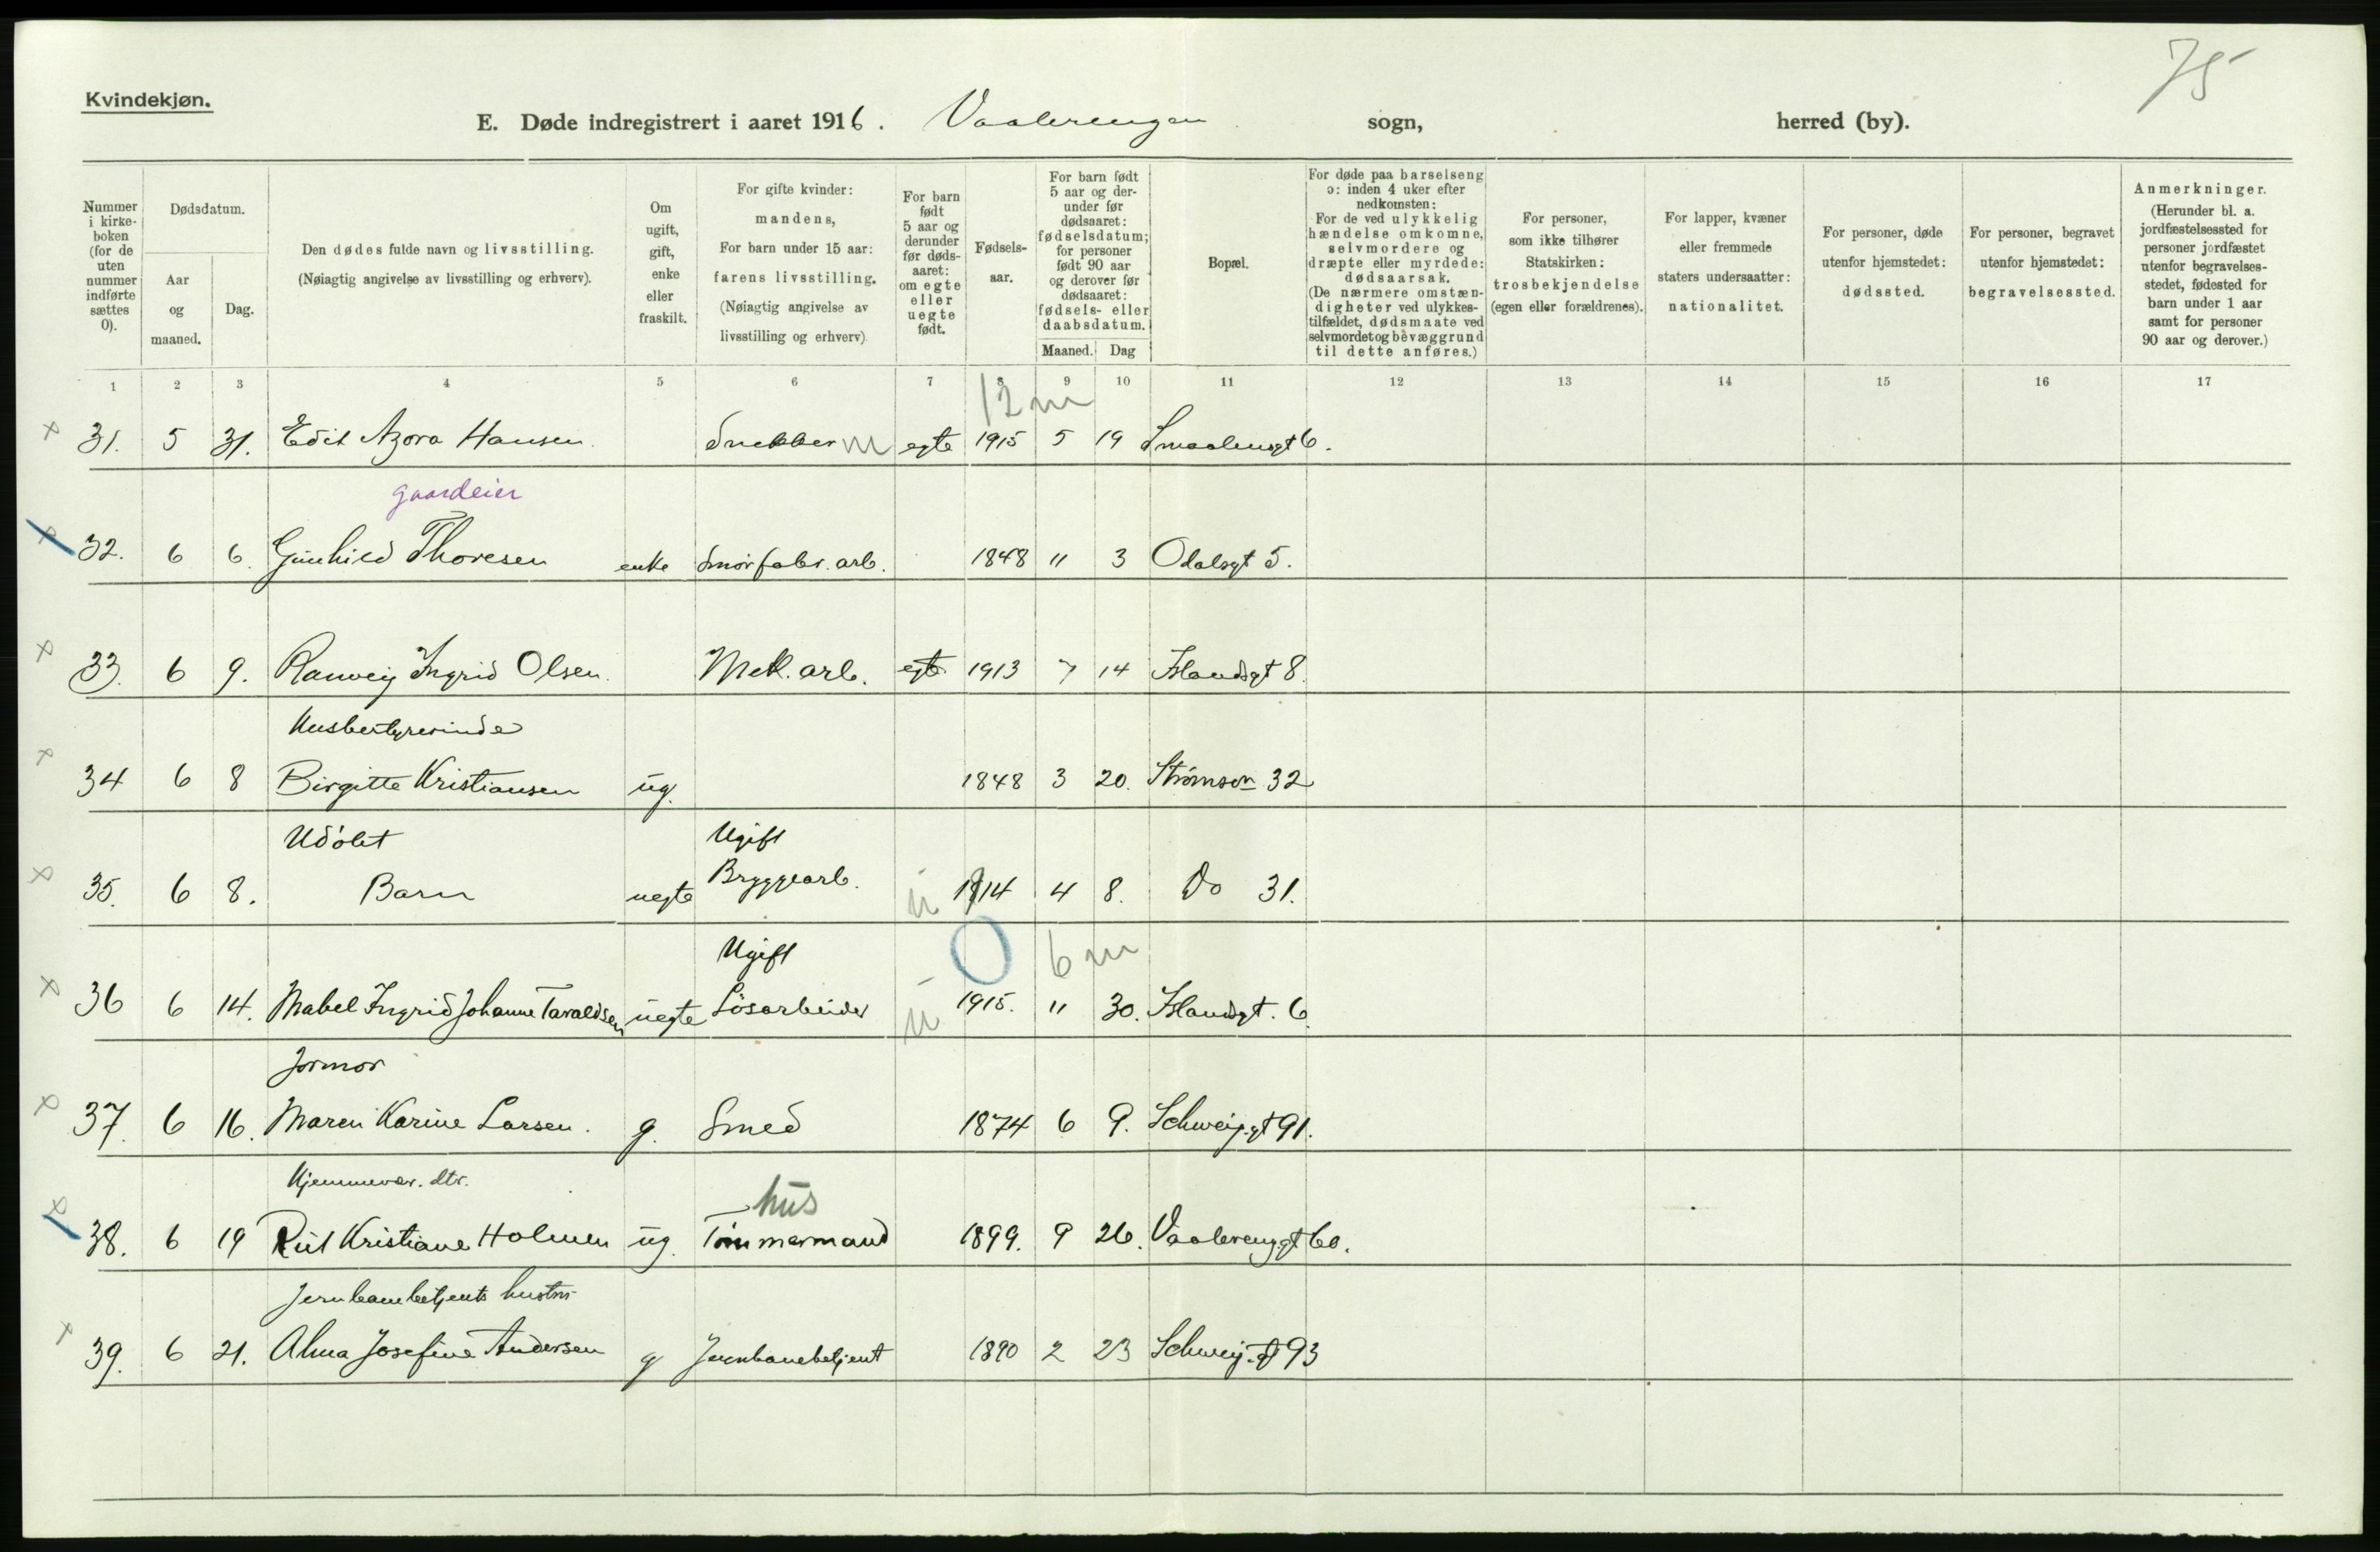 75
Kvindekjøn.
E. Døde indregistrert i aaret 1916. Vaalerengen sogn, herred (by).
Nummer i kirke-boken (for de uten nummer indførte sættes 0).
Dødsdatum.
Aar og maaned.
Dag.
Den dødes fulde navn og livsstilling.
(Nøiagtig angivelse av livsstilling og erhverv).
Om ugift, gift, enke eller fraskilt.
For gifte kvinder: mandens,
For barn under 15 aar: farens livsstilling.
(Nøiagtig angivelse av livsstilling og erhverv)
For barn født 5 aar og derunder før døds-aaret: om egte eller uegte født.
Fødsels-aar.
For barn født 5 aar og der-under før dødsaaret: fødselsdatum; for personer født 90 aar og derover før dødsaaret: fødsels- eller daabsdatum.
Maaned. Dag
Bopæl.
For døde paa barselseng ɔ: inden 4 uker efter nedkomsten:
For de ved ulykkelig hændelse omkomne, selvmordere og dræpte eller myrdede: dødsaarsak.
(De nærmere omstæn-digheter ved ulykkes-tilfældet, dødsmaate ved selvmordet og bevæggrund til dette anføres.)
For personer, som ikke tilhører Statskirken: trosbekjendelse (egen eller forældrenes).
For lapper, kvæner eller fremmede staters undersaatter: nationalitet.
For personer, døde utenfor hjemstedet: dødssted.
For personer, begravet utenfor hjemstedet: begravelsessted.
Anmerkninger.
(Herunder bl. a. jordfæstelsessted for personer jordfæstet utenfor begravelses-stedet, fødested for barn under 1 aar samt for personer 90 aar og derover.)
1 2 3 4 5 6 7 8 9 10 11 12 13 14 15 16 17
12 m
31. 5 31. Edit Azora Hansen Snekker m egte 1915 5 19 Smaalensgt 6.
gaardeier
32. 6 6. Gunhild Thoresen enke Smørfabr. arb. 1848 11 3 Odalsgt 5.
33. 6 9. Ranveig Ingrid Olsen. Mek. arb. egte 1913 7 14 Islandsgt 8.
Husbestyrerinde
34 6 8 Birgitte Kristiansen ug. 1848 3 20. Strømsvn 32
Udøbt Ugift
35. 6 8. Barn uegte Bryggearb. u 1914 4 8. Do 31.
Ugift 0 6 m
36 6 14. Mabel Ingrid Johanne Taraldsen uegte Løsarbeider u 1915. 11 30. Islandsgt. 6.
Jormor
37. 6 16. Maren Karine Larsen. g. Smed 1874 6 9. Schweig.gt 91.
Hjemmevær. dtr. hus
38. 6 19 Rut Kristiane Holmen ug. Tømmermand 1899. 9 26. Vaalerenggt 60.
Jernbanebetjents hustru
39. 6 21. Alma Josefine Andersen g Jernbanebetjent 1890 2 23 Schweig.gt 93